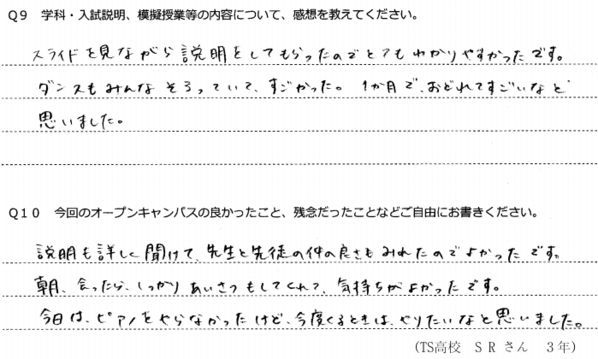 Q9 学科・入試説明、模擬授業等の内容について、感想を教えてください。
スライドを見ながら説明をしてもらったのでとてもわかりやすかったです。
ダンスもみんなそろっていて、すごかった。1か月で、おどれてすごいなと
思いました。
Q10 今回のオープンキャンパスの良かったこと、残念だったことなどご自由にお書きください。
説明も詳しく聞けて、先生と先徒の仲の良さもみれたのでよかったです。
朝、会ったら、しっかりあいさつもしてくれて、気持ちがよかったです。
今日は、ピアノをやらなかったけど、今度くるときは、やりたいなと思いました。
(TS高校 SRさん 3年)